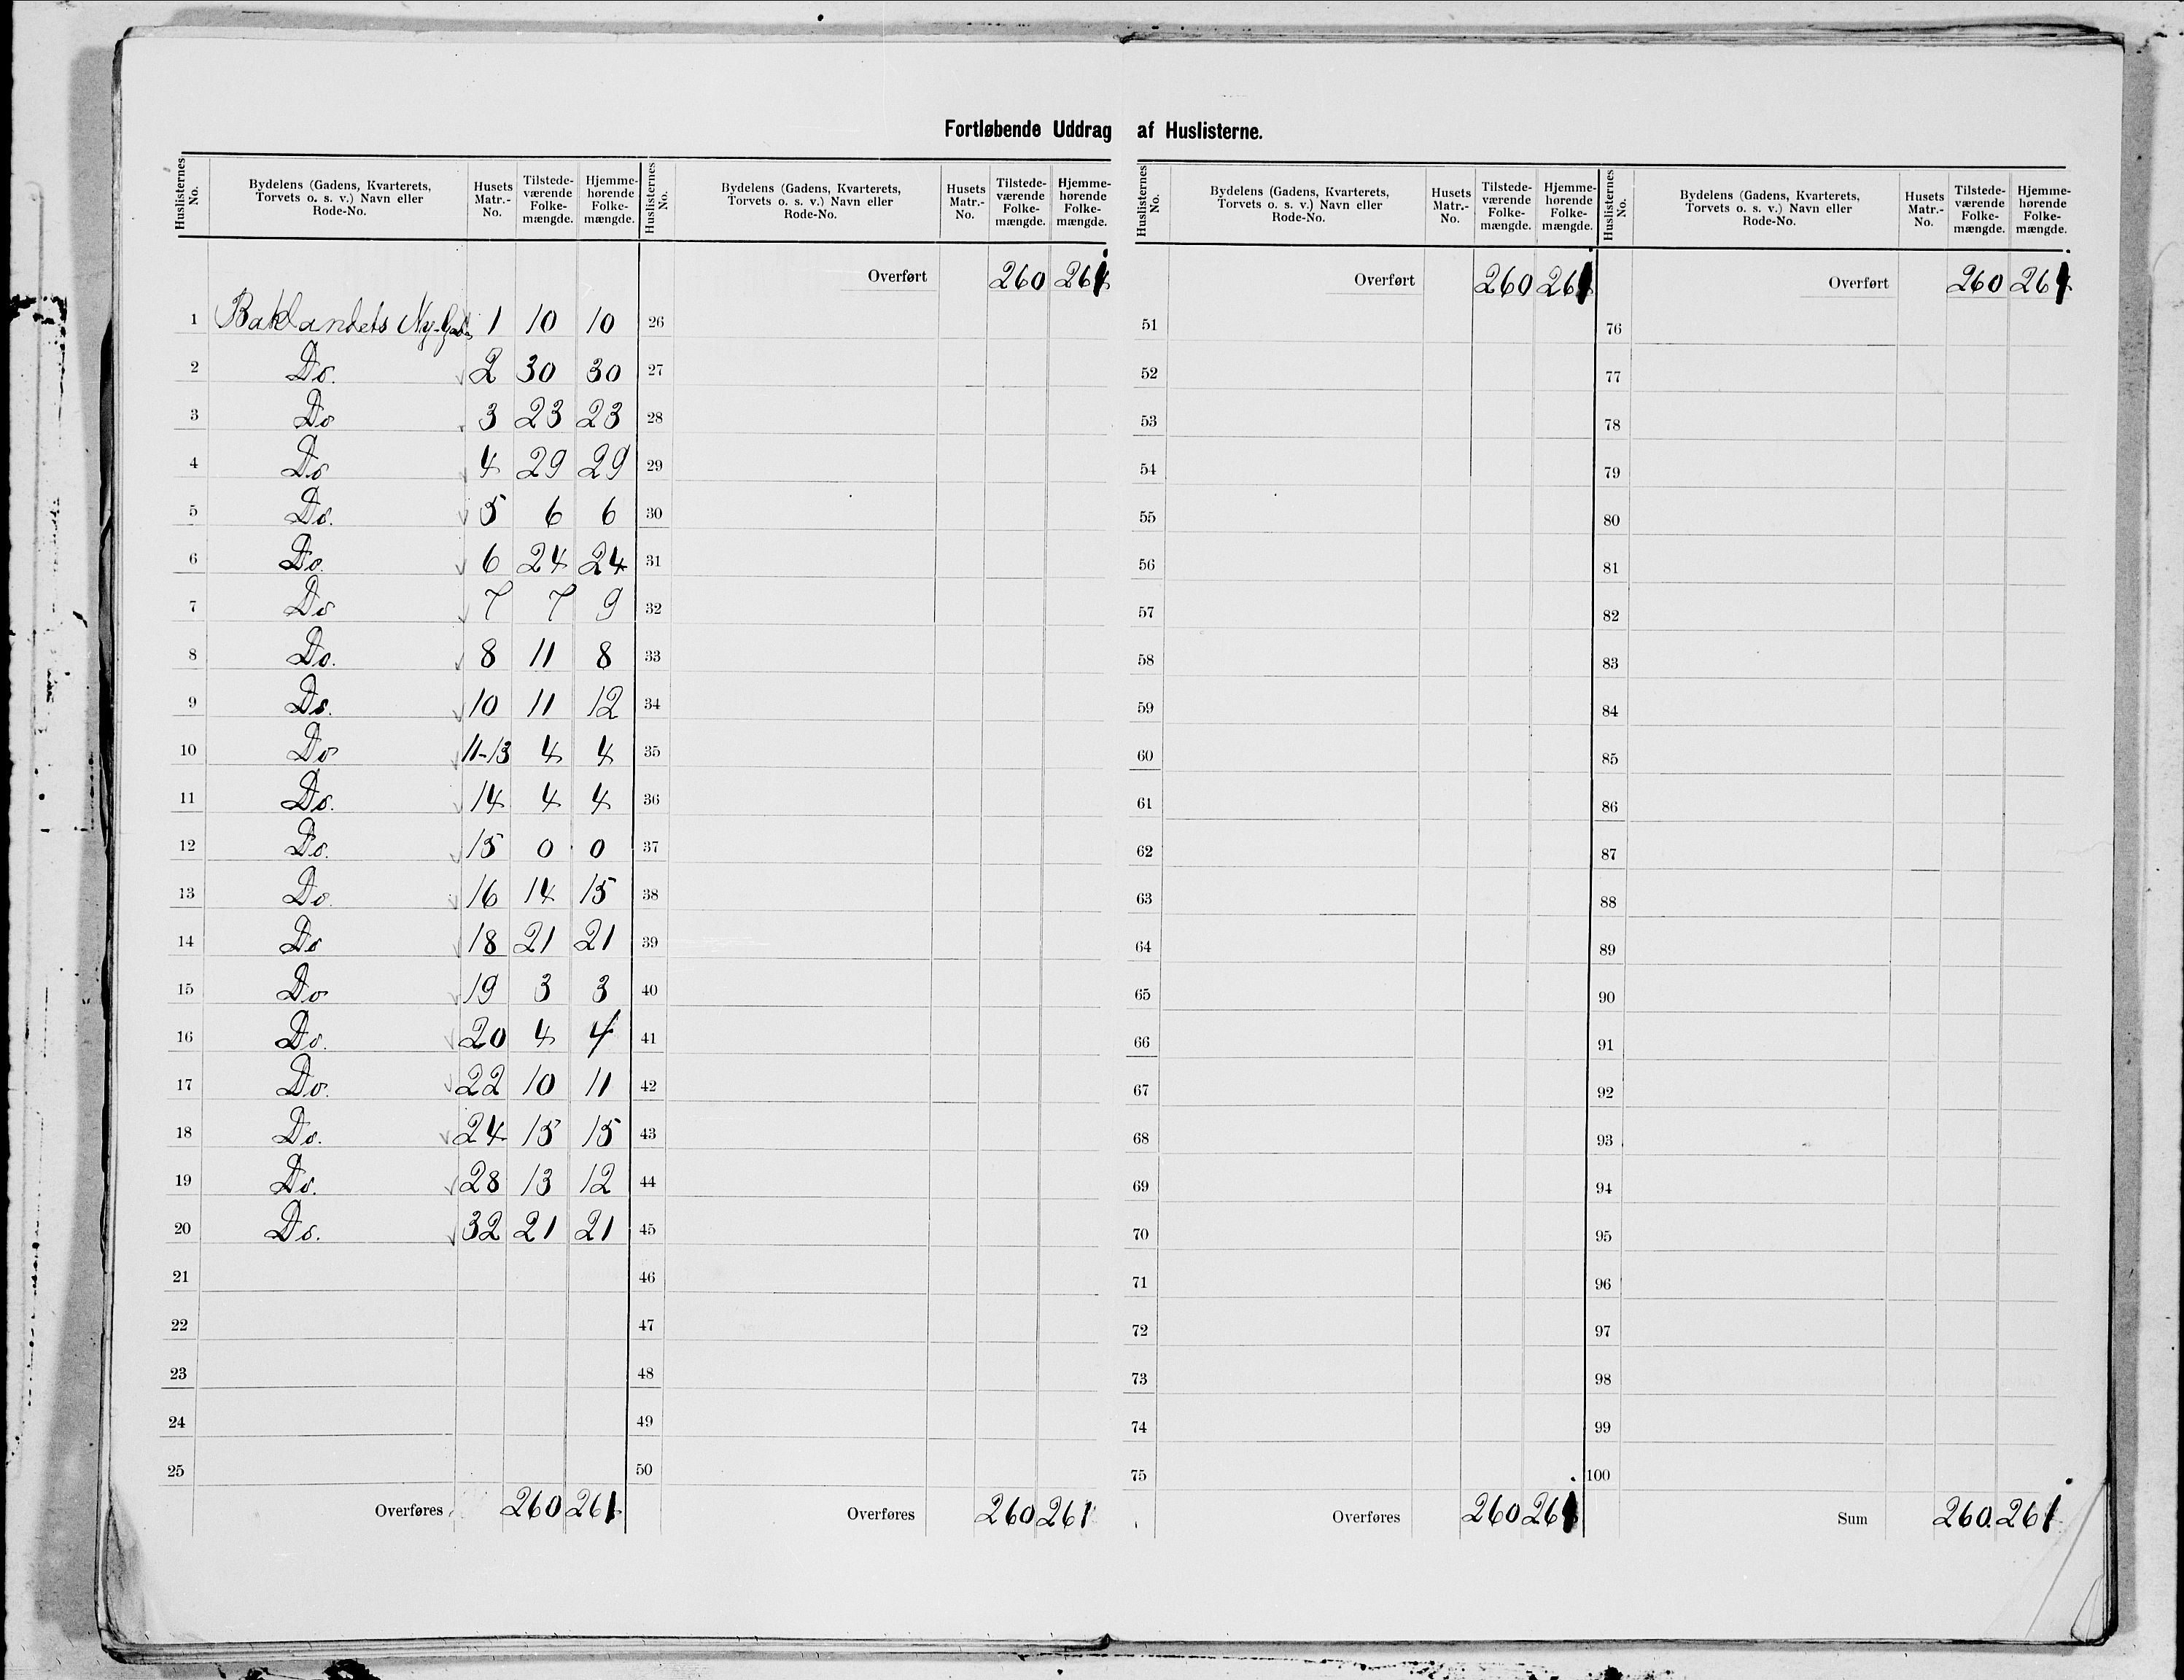 Fortløbende Uddrag af Huslisterne.
Huslisternes No. Bydelens (Gadens, Kvarterets, Torvets o. s. v.) Navn eller Rode-No. Husets Matr.-No. Tilstede-værende Folke-mængde. Hjemme-hørende Folke-mængde.
1 Baklandets Ny-Gade 1 10 10
2 Do. 2 30 30
3 Do 3 23 23
4 Do 4 29 29
5 Do. 5 6 6
6 Do. 6 24 24
7 Do 7 7 9
8 Do. 8 11 8
9 Do. 10 11 12
10 Do 11-13 4 4
11 Do. 14 4 4
12 Do. 15 0 0
13 Do. 16 14 15
14 Do 18 21 21
15 Do 19 3 3
16 Do. 20 4 4
17 Do. 22 10 11
18 Do. 24 15 15
19 Do. 28 13 12
20 Do. 32 21 21
21
22
23
24
25
Overføres 260 261
Huslisternes No. Bydelens (Gadens, Kvarterets, Torvets o. s. v.) Navn eller Rode-No. Husets Matr.-No. Tilstede-værende Folke-mængde. Hjemme-hørende Folke-mængde.
Overført 260 261
26
27
28
29
30
31
32
33
34
35
36
37
38
39
40
41
42
43
44
45
46
47
48
49
50
Overføres 260 261
Huslisternes No. Bydelens (Gadens, Kvarterets, Torvets o. s. v.) Navn eller Rode-No. Husets Matr.-No. Tilstede-værende Folke-mængde. Hjemme-hørende Folke-mængde.
Overført 260 261
51
52
53
54
55
56
57
58
59
60
61
62
63
64
65
66
67
68
69
70
71
72
73
74
75
Overføres 260 261
Huslisternes No. Bydelens (Gadens, Kvarterets, Torvets o. s. v.) Navn eller Rode-No. Husets Matr.-No. Tilstede-værende Folke-mængde. Hjemme-hørende Folke-mængde.
Overført 260 261
76
77
78
79
80
81
82
83
84
85
86
87
88
89
90
91
92
93
94
95
96
97
98
99
100
Sum 260. 261